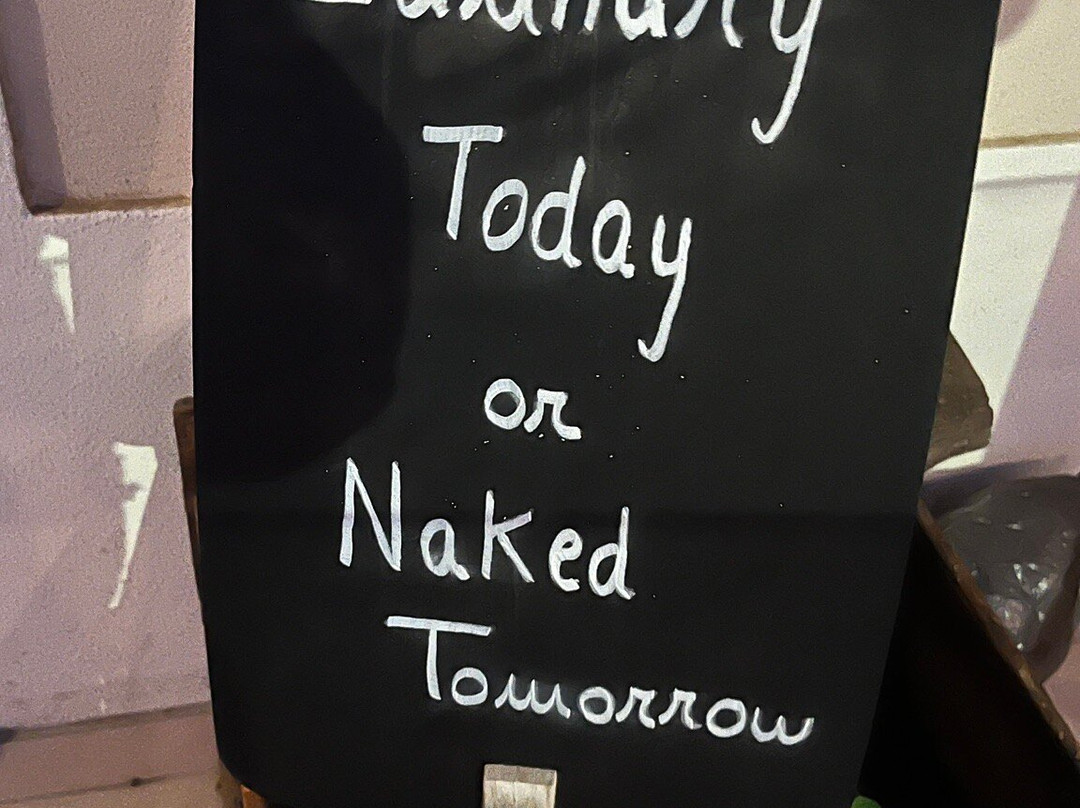 Laundry
Today
or
Naked
Tomorrow